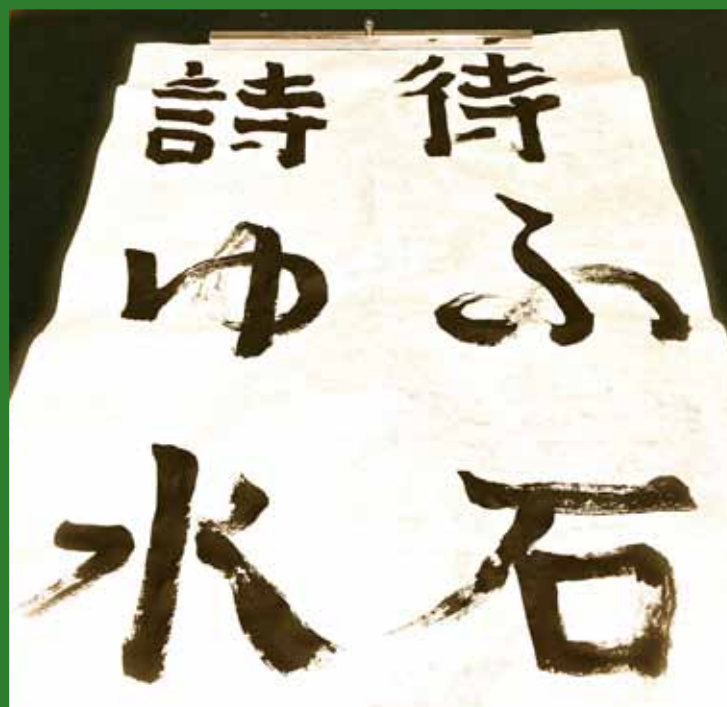 待ふ石
詩ゆ水